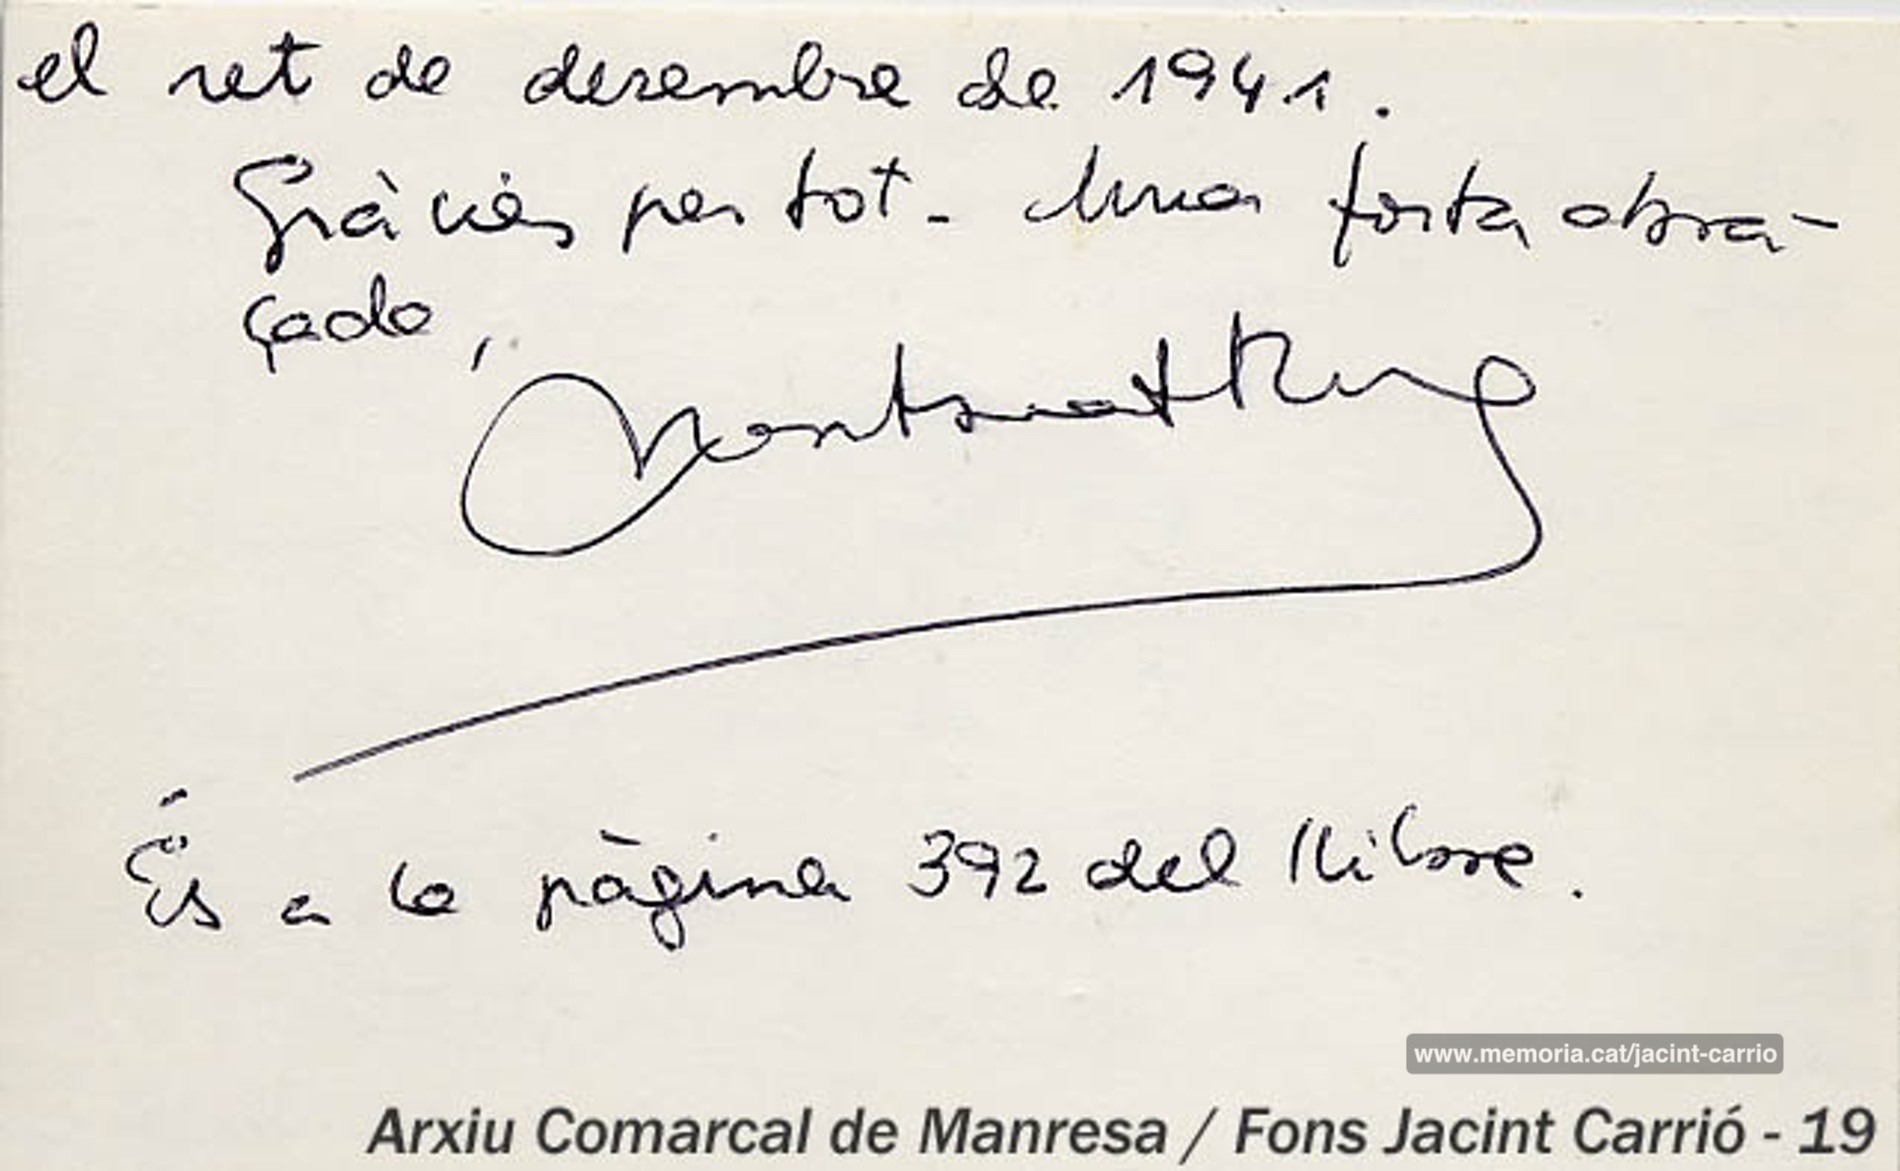 el set de desembre de 1941.
Gràcies per tot - Una forta abra-
çada,
Montserrat Roig
És a la pàgina 392 del llibre.
www.memoria.cat/jacint-carrio
Arxiu Comarcal de Manresa / Fons Jacint Carrió - 19